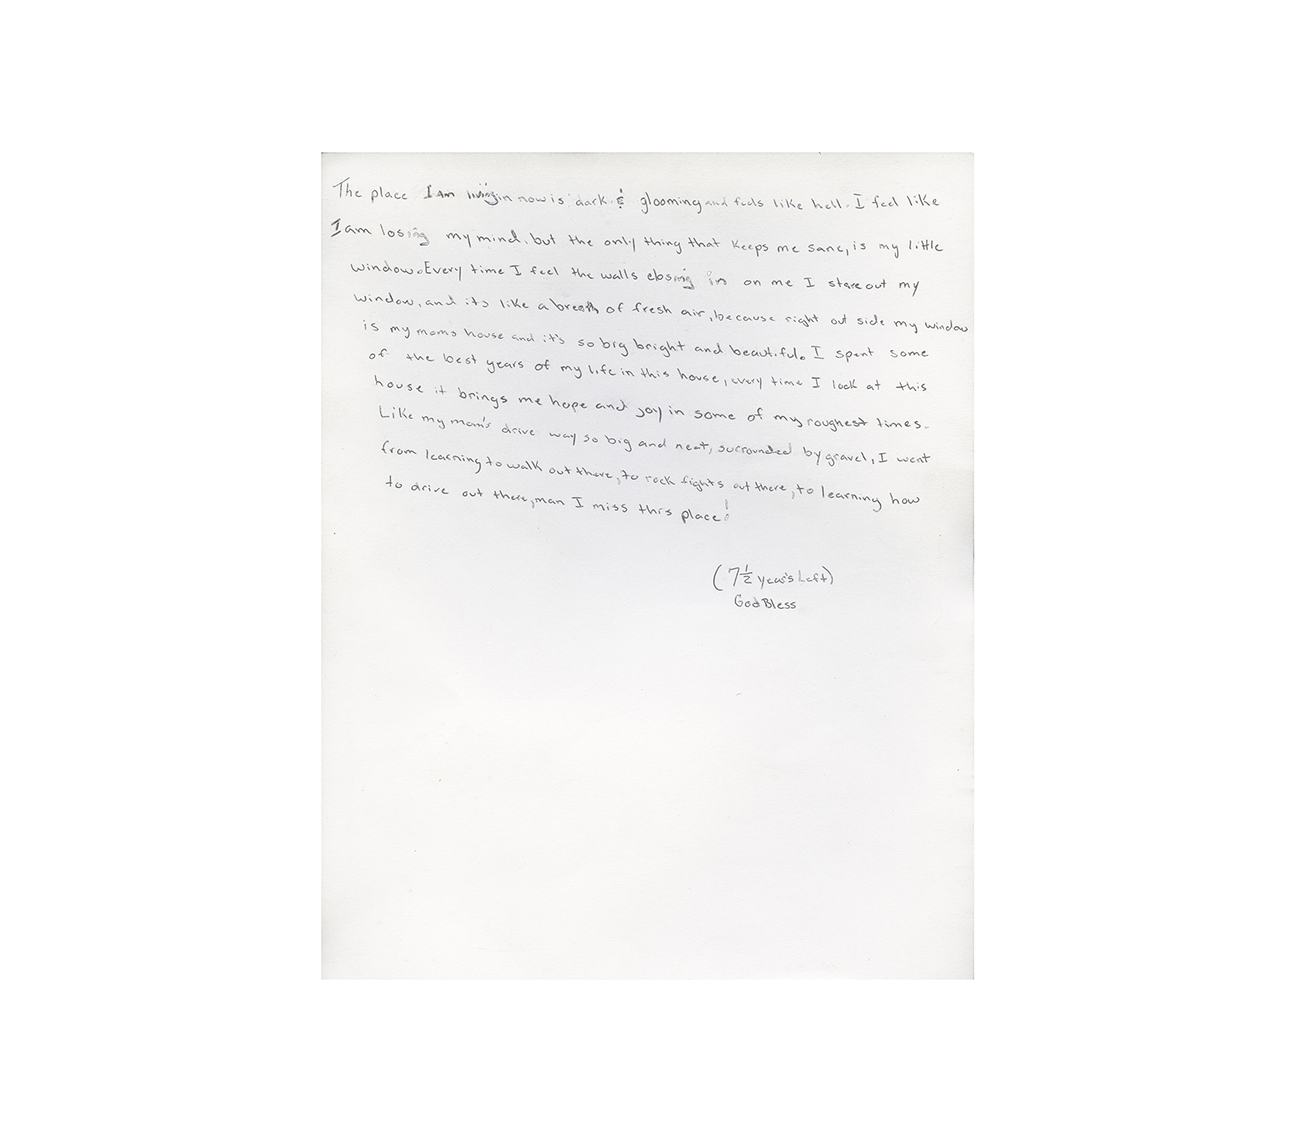 The place I am living in now is dark & glooming and feels like hell. I feel like
I am losing my mind. but the only thing that keeps me sane, is my little
window. Every time I feel the walls closing in on me I stare out my
window, and its like a breath of fresh air, because right out side my window
is my moms house and it's so big bright and beautiful. I spent some
of the best years of my life in this house, every time I look at this
house it brings me hope and joy in some of my roughest times.
Like my mom's drive way so big and neat, surrounded by gravel, I went
from learning to walk out there, to rock fights out there, to learning how
to drive out there, man I miss this place!
(7 1/2 year's Left)
God Bless